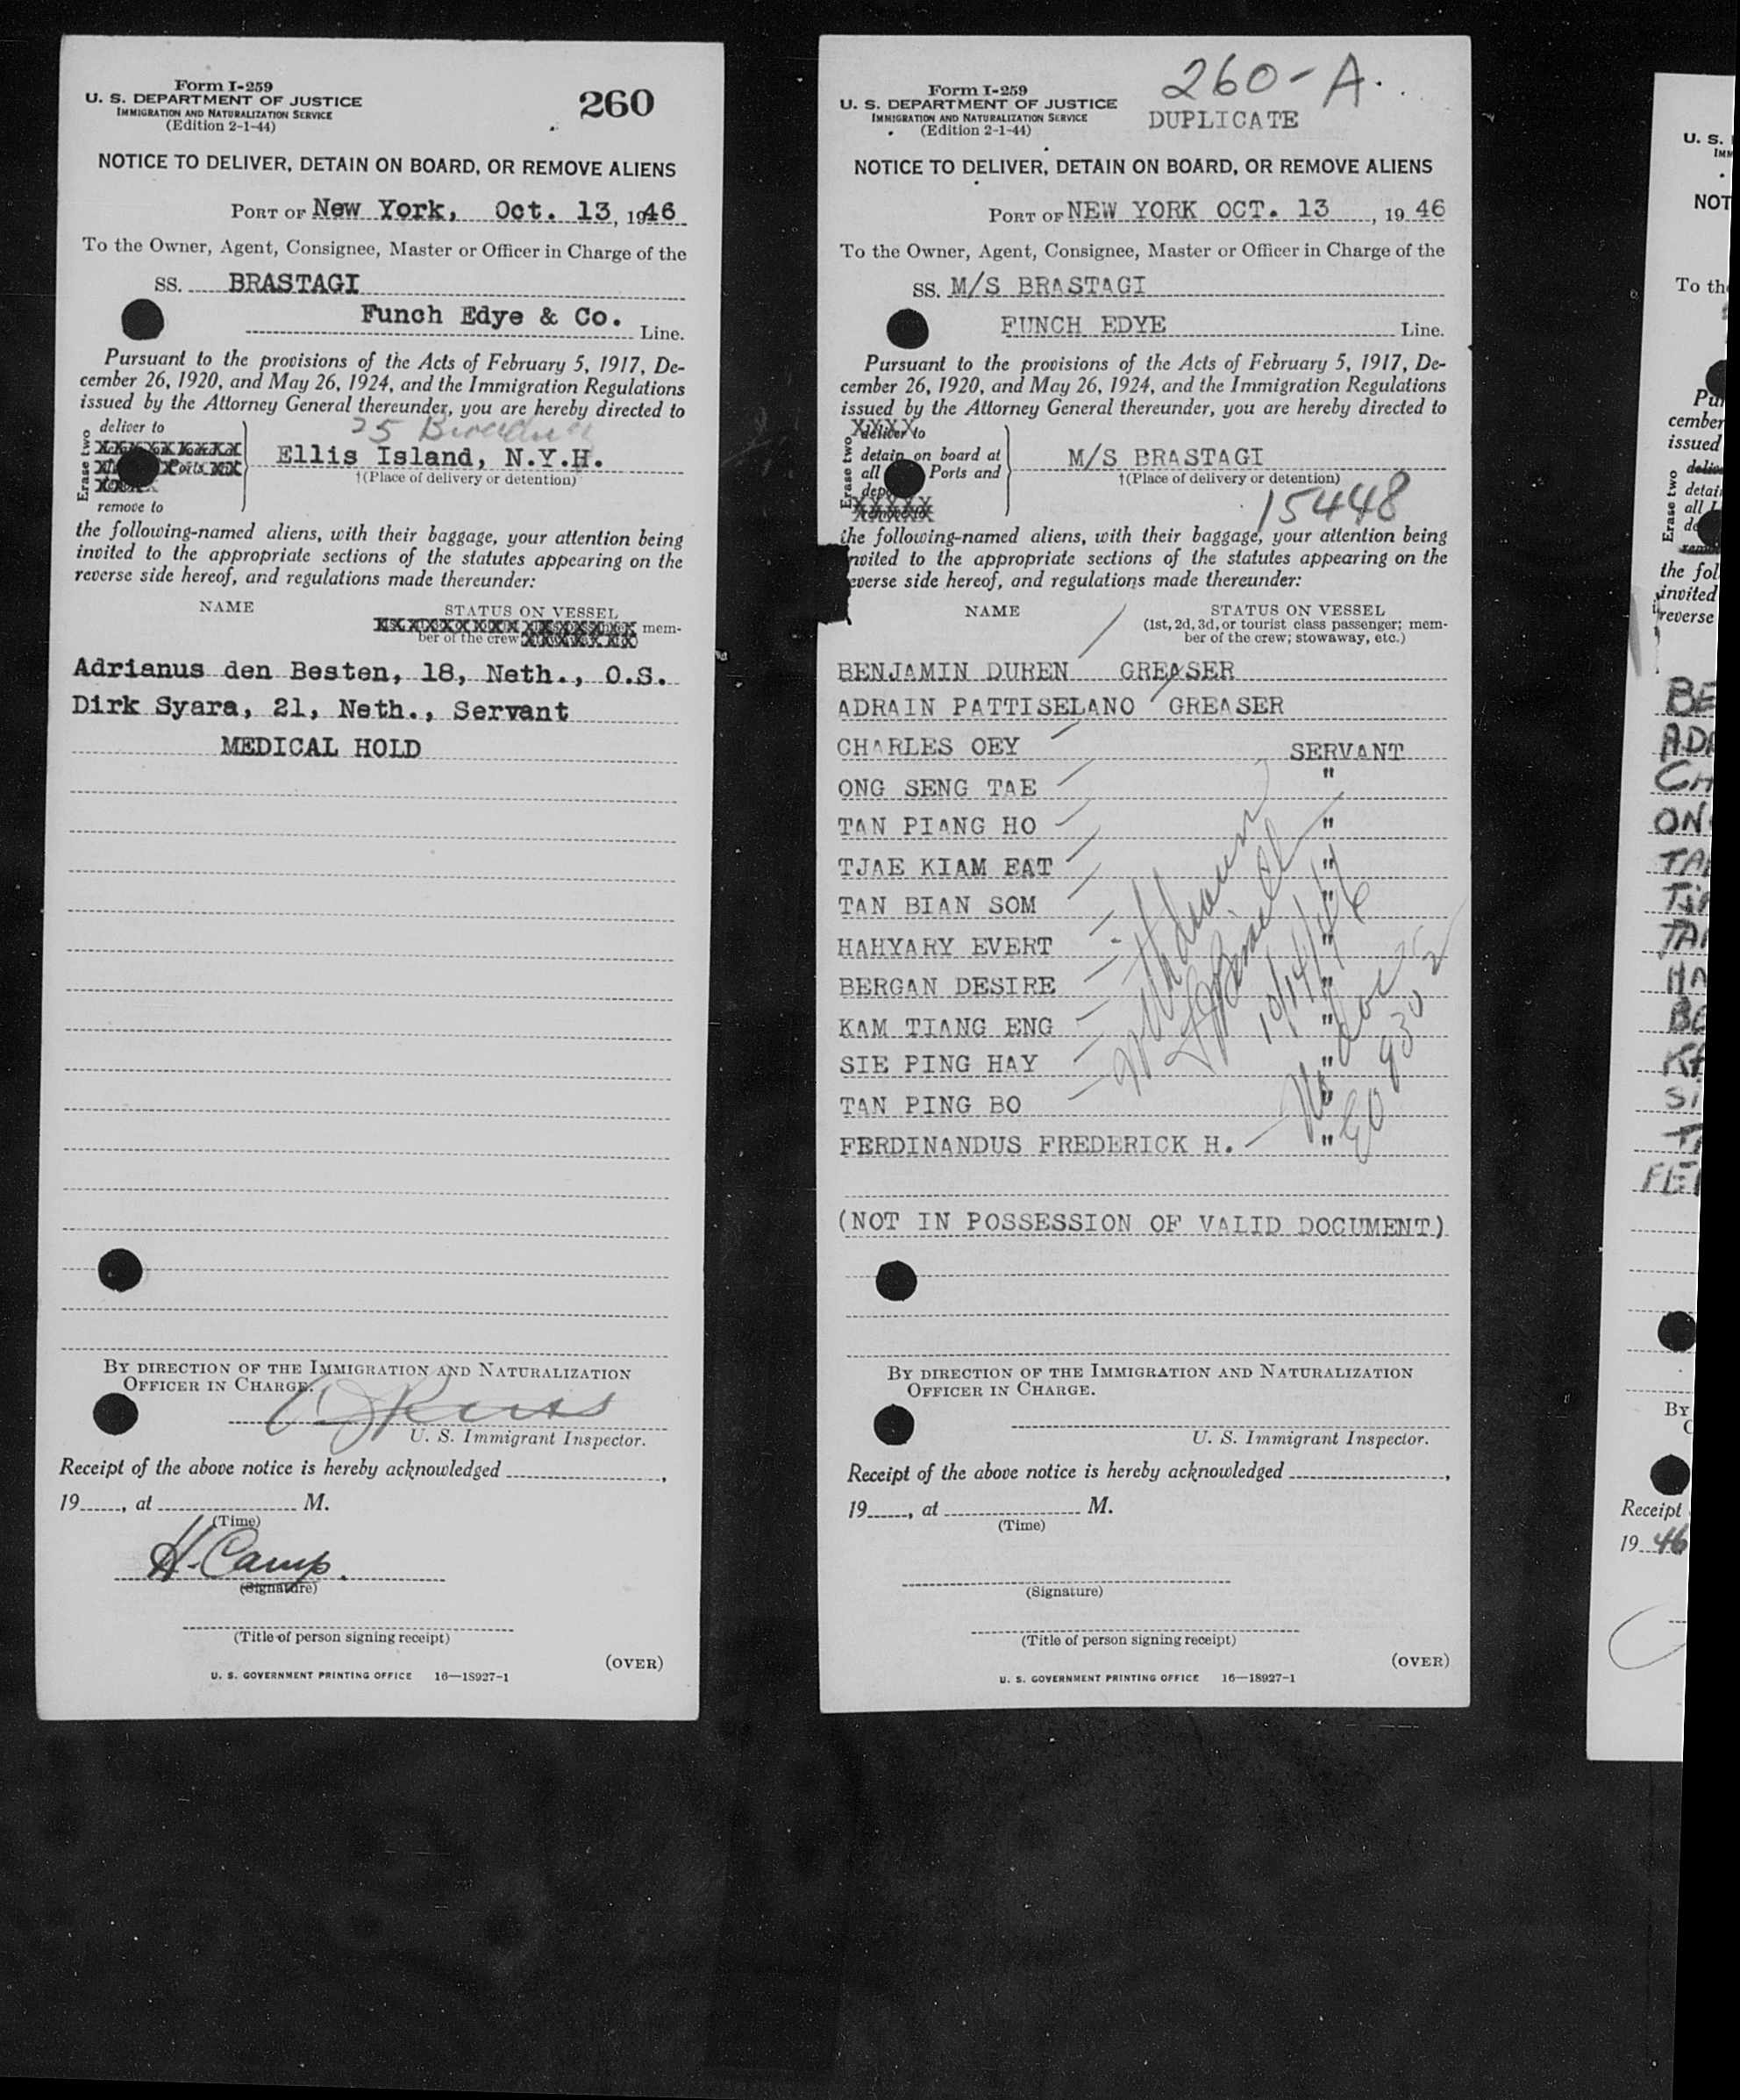 Form I-259
U. S. DEPARTMENT OF JUSTICE
IMMIGRATION AND NATURALIZATION SERVICE
(Edition 2-1-44)
260
NOTICE TO DELIVER, DETAIN ON BOARD, OR REMOVE ALIENS
PORT OF New York, Oct. 13, 1946
To the Owner, Agent, Consignee, Master or Officer in Charge of the
SS. BRASTAGI
Funch Edye & Co. Line.
Pursuant to the provisions of the Acts of February 5, 1917, De-
cember 26, 1920, and May 26, 1924, and the Immigration Regulations
issued by the Attorney General thereunder, you are hereby directed to
25
Erase two
deliver to
Ellis Island, N.Y.H.
†(Place of delivery or detention)
remove to
the following-named aliens, with their baggage, your attention being
invited to the appropriate sections of the statutes appearing on the
reverse side hereof, and regulations made thereunder:
NAME STATUS ON VESSEL
mem-
ber of the crew
Adrianus den Besten, 18, Neth., O.S.
Dirk Syara, 21, Neth., Servant
MEDICAL HOLD
BY DIRECTION OF THE IMMIGRATION AND NATURALIZATION
OFFICER IN CHARGE.
U. S. Immigrant Inspector.
Receipt of the above notice is hereby acknowledged ,
19 , at M.
(Time)
H. Camp.
(Signature)
(Title of person signing receipt)
(OVER)
U. S. GOVERNMENT PRINTING OFFICE 16—18927-1
Form I-259
U. S. DEPARTMENT OF JUSTICE
IMMIGRATION AND NATURALIZATION SERVICE
(Edition 2-1-44)
260-A.
DUPLICATE
NOTICE TO DELIVER, DETAIN ON BOARD, OR REMOVE ALIENS
PORT OF NEW YORK OCT. 13, 19 46
To the Owner, Agent, Consignee, Master or Officer in Charge of the
SS. M/S BRASTAGI
FUNCH EDYE Line.
Pursuant to the provisions of the Acts of February 5, 1917, De-
cember 26, 1920, and May 26, 1924, and the Immigration Regulations
issued by the Attorney General thereunder, you are hereby directed to
Erase two
deliver to
detain on board at
all Ports and
M/S BRASTAGI
†(Place of delivery or detention)
remove to
15448
the following-named aliens, with their baggage, your attention being
invited to the appropriate sections of the statutes appearing on the
reverse side hereof, and regulations made thereunder:
NAME STATUS ON VESSEL
(1st, 2d, 3d, or tourist class passenger; mem-
ber of the crew; stowaway, etc.)
BENJAMIN DUREN GREASER
ADRAIN PATTISELANO GREASER
CHARLES OEY SERVANT
ONG SENG TAE "
TAN PIANG HO "
TJAE KIAM EAT "
TAN BIAN SOM "
HAHYARY EVERT "
BERGAN DESIRE "
KAM TIANG ENG "
SIE PING HAY "
TAN PING BO "
FERDINANDUS FREDERICK H. "
Withdrawn
10/14/46
(NOT IN POSSESSION OF VALID DOCUMENT)
BY DIRECTION OF THE IMMIGRATION AND NATURALIZATION
OFFICER IN CHARGE.
U. S. Immigrant Inspector.
Receipt of the above notice is hereby acknowledged ,
19 , at M.
(Time)
(Signature)
(Title of person signing receipt)
(OVER)
U. S. GOVERNMENT PRINTING OFFICE 16—18927-1
U. S.
NOT
To th
cember
issued
Erase two
the fol
invited
reverse
BE
AD
ON
TA
HA
By
Receipt
19 46